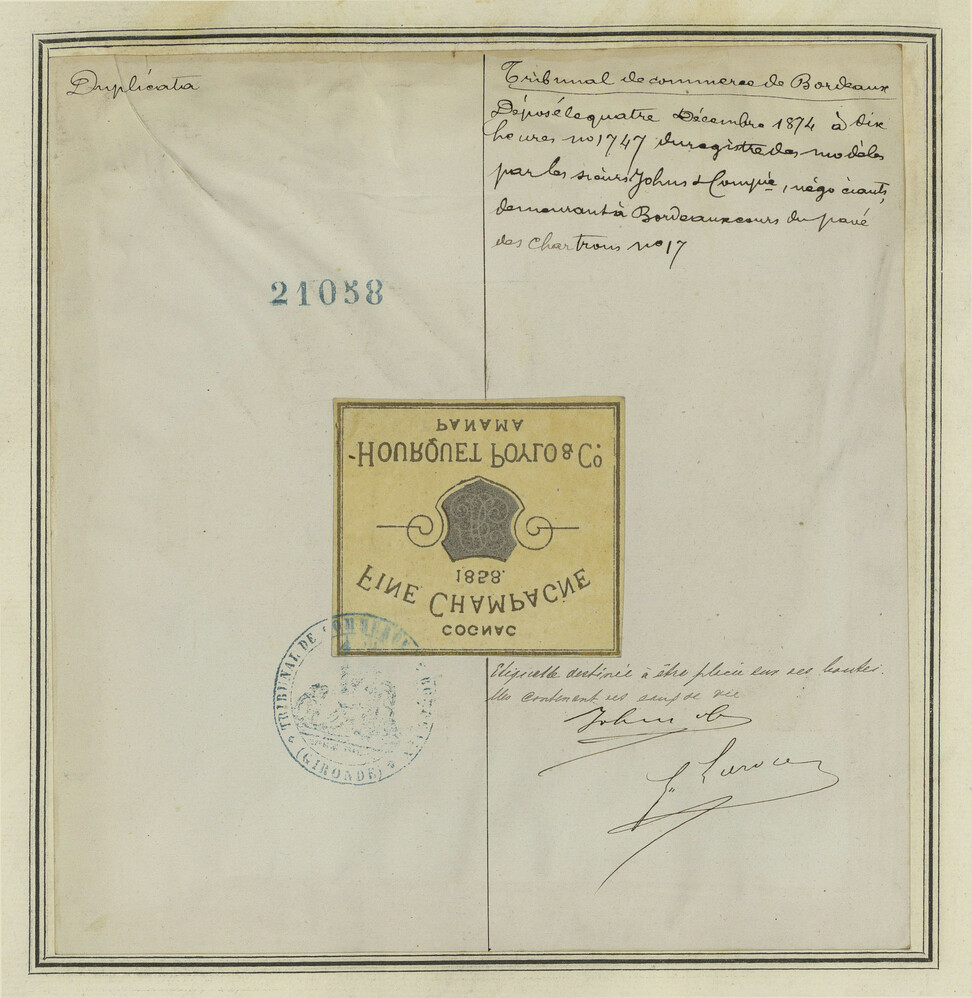 Duplicata
Tribunal de commerce de Bordeaux
Déposé le quatre Décembre 1874 à dix
heures no 1747 du registre des modèles
par les sieurs Johns & Compie, négociants,
demeurant à Bordeaux cours du pavé
des Chartrons no 17
21058
COGNAC
FINE CHAMPAGNE
1858.
HOURQUET POYLO & Co.
PANAMA
TRIBUNAL DE COMMERCE
(GIRONDE)
Etiquette destinée à être placée sur ses bouteil
lles contenant ses eaux de vie